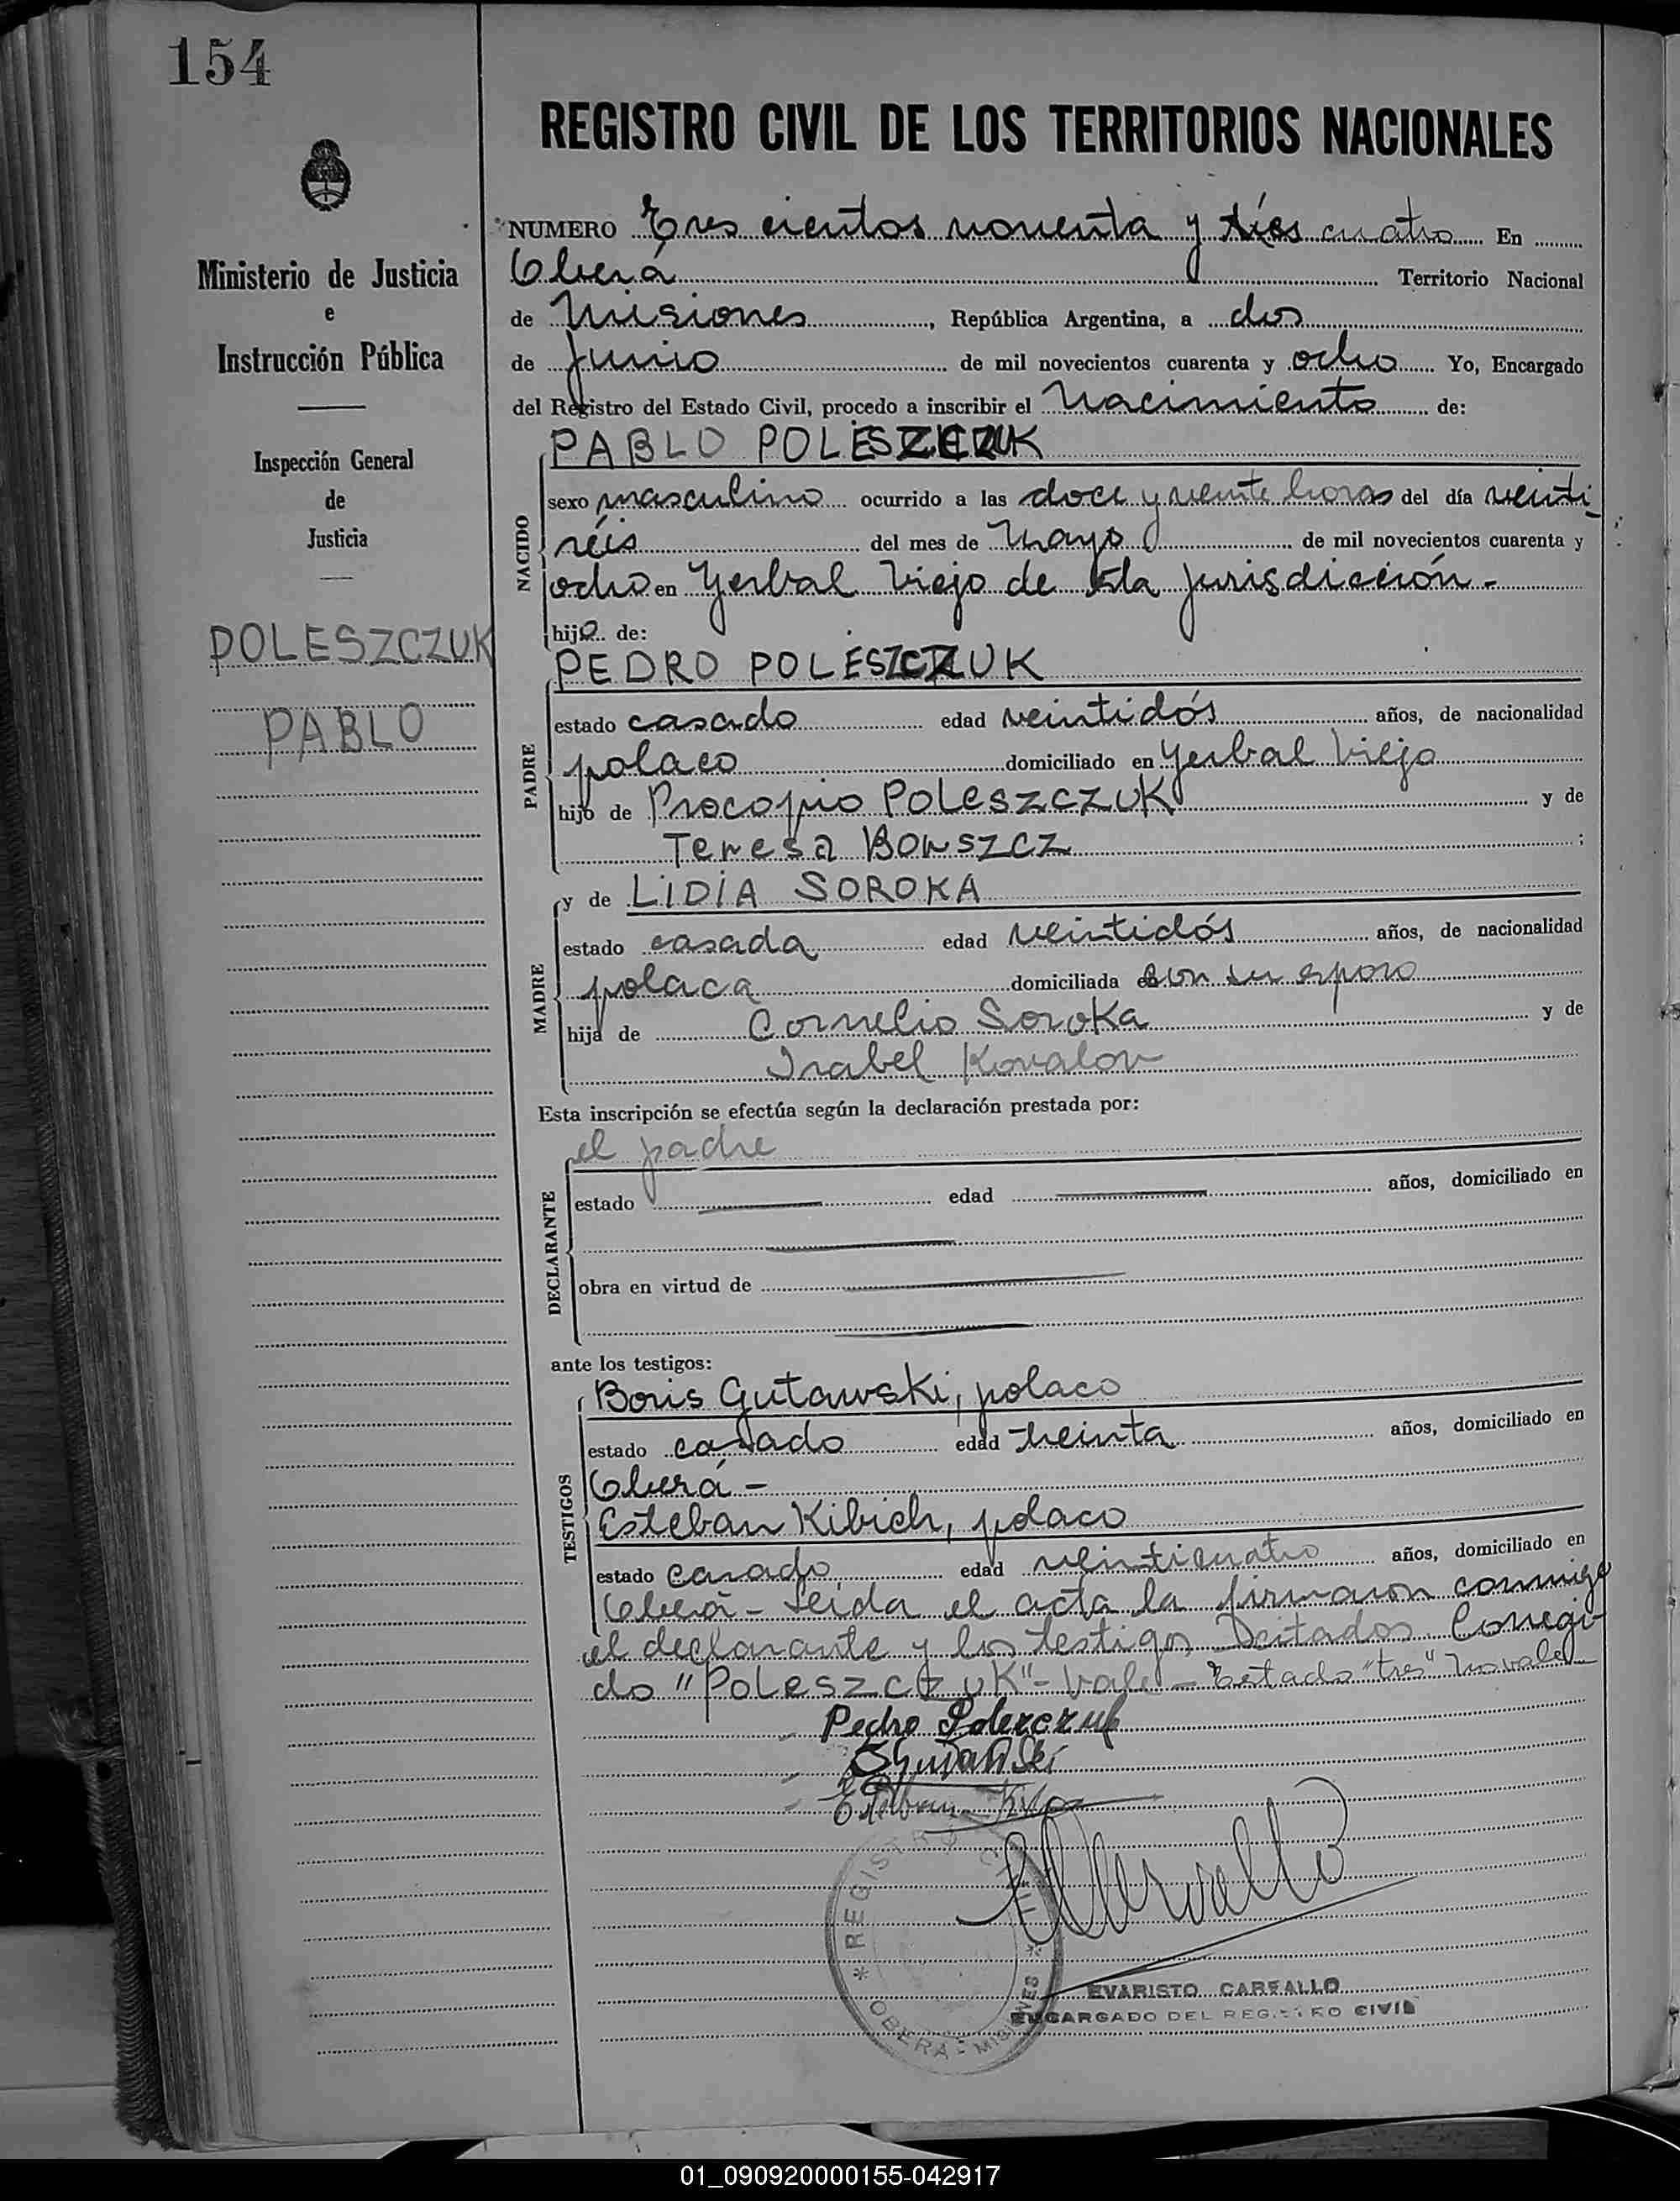 154
REGISTRO CIVIL DE LOS TERRITORIOS NACIONALES
Ministerio de Justicia
e
Instrucción Pública
Inspección General
de
Justicia
POLESZCZUK
PABLO
NUMERO Tres cientos noventa y tres cuatro En
Oberá Territorio Nacional
de Misiones, República Argentina, a dos
de Junio de mil novecientos cuarenta y ocho Yo, Encargado
del Registro del Estado Civil, procedo a inscribir el Nacimiento de:
PABLO POLESZCZUK
NACIDO
sexo masculino ocurrido a las doce y veinte horas del día veinti-
séis del mes de Mayo de mil novecientos cuarenta y
ocho en Yerbal Viejo de esta jurisdicción.-
hijo de:
PEDRO POLESZCZUK
PADRE
estado casado edad veintidós años, de nacionalidad
polaco domiciliado en Yerbal Viejo
hijo de Procopio Poleszczuk y de
Teresa Borszcz;
y de LIDIA SOROKA
MADRE
estado casada edad veintidós años, de nacionalidad
polaca domiciliada con su esposo
hija de Cornelio Soroka y de
Isabel Kovalov
Esta inscripción se efectúa según la declaración prestada por:
el padre
DECLARANTE
estado edad años, domiciliado en
obra en virtud de
ante los testigos:
Boris Gutawski, polaco
TESTIGOS
estado casado edad treinta años, domiciliado en
Oberá-
Esteban Kibich, polaco
estado casado edad veinticuatro años, domiciliado en
Oberá- Leida el acta la firmaron conmigo
el declarante y los testigos citados Corregi-
do "Poleszczuk"- Vale- Testado "tres" No vale-
Pedro Polerczuk
REGISTRO CIVIL * OBERA - MISIONES *
EVARISTO CARBALLO
ENCARGADO DEL REGISTRO CIVIL
01_090920000155-042917